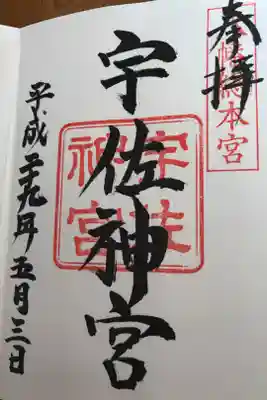 奉拝
八幡総本宮
宇佐神宮
宇佐神宮
平成二十九年五月三日